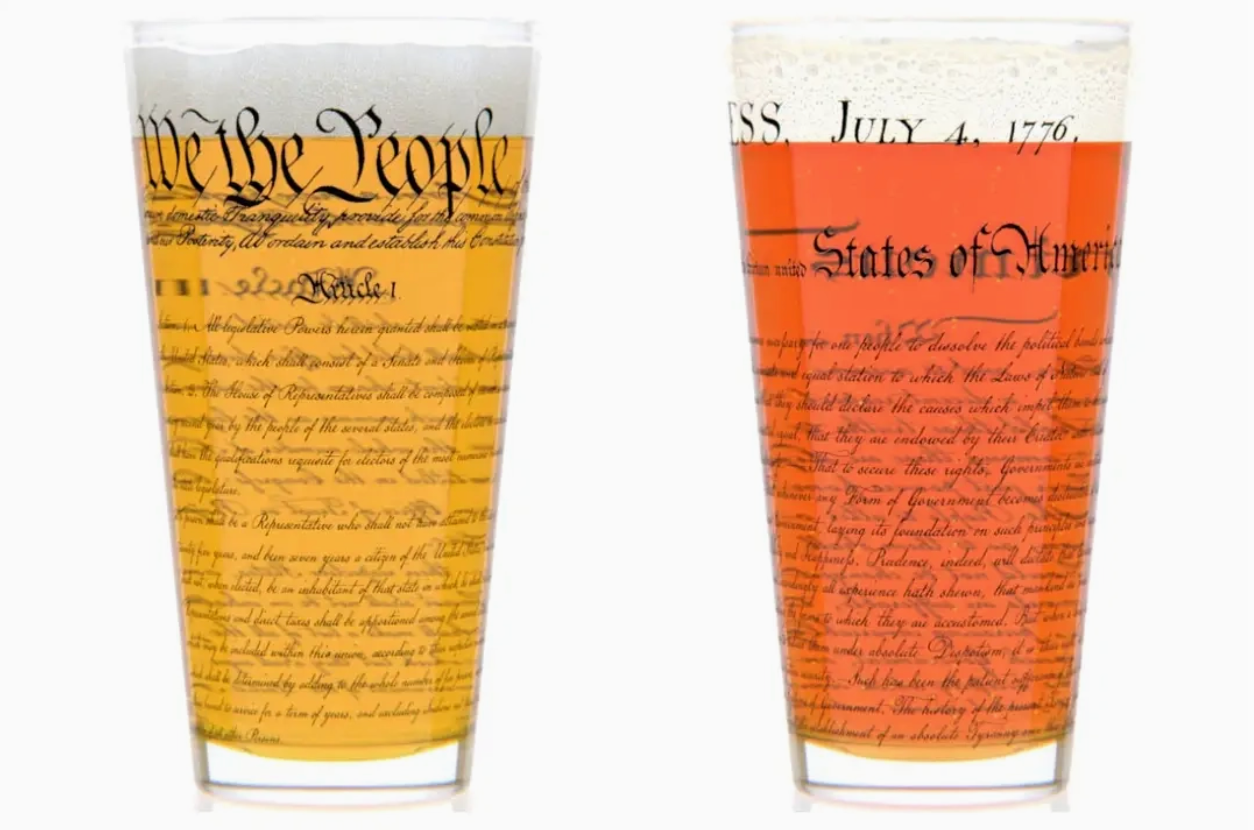 We the People
domestic Tranquility, provide for the common
Posterity, do ordain and establish this Constitution
Article I.
All legislative Powers herein granted shall be vested
United States, which shall consist of a Senate and House of
The House of Representatives shall be composed of
year by the people of the several states, and the electors
the qualifications requisite for electors of the most numerous
legislature.
shall be a Representative who shall not have attained to the
five years, and been seven years a citizen of the United States
not, when elected, be an inhabitant of that state in which he shall
Representatives and direct taxes shall be apportioned among the several
may be included within this union, according to their
shall be determined by adding to the whole number of free
to service for a term of years, and excluding Indians
other Persons.
ESS, JULY 4, 1776.
united States of America
for one people to dissolve the political bands
equal station to which the Laws of
they should declare the causes which impel them
equal, that they are endowed by their Creator
That to secure these rights, Governments
whenever any Form of Government becomes destructive
laying its foundation on such principles
and Happiness. Prudence, indeed, will dictate that
all experience hath shewn, that mankind
to which they are accustomed. But when
them under absolute Despotism, it is
security. Such has been the patient sufferance
of Government. The history of the present
establishment of an absolute Tyranny